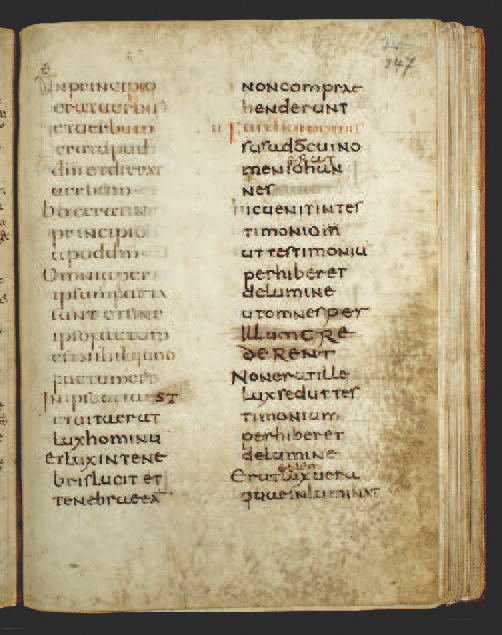 247
Inprincipio
eratuerbu
eruerbum
eratapud
dm
uerbum
hoceratin
principio
apuddm
Omniaper
ipsum
sunt etsine
ipso
etnihilquod
factumest
Inipso EST
uitaerat
luxhominu
etluxintene
brislucit et
tenebraeex
noncomprae
henderunt
susadocuino
menerat
nes
hicuenitintes
timonium
uttestimoniu
perhiberet
delumine
utomnesper
illumCRE
DERENT
Noneratille
luxseduttes
timonium
perhiberet
delumine
Eratluxuera
quaeinluminat